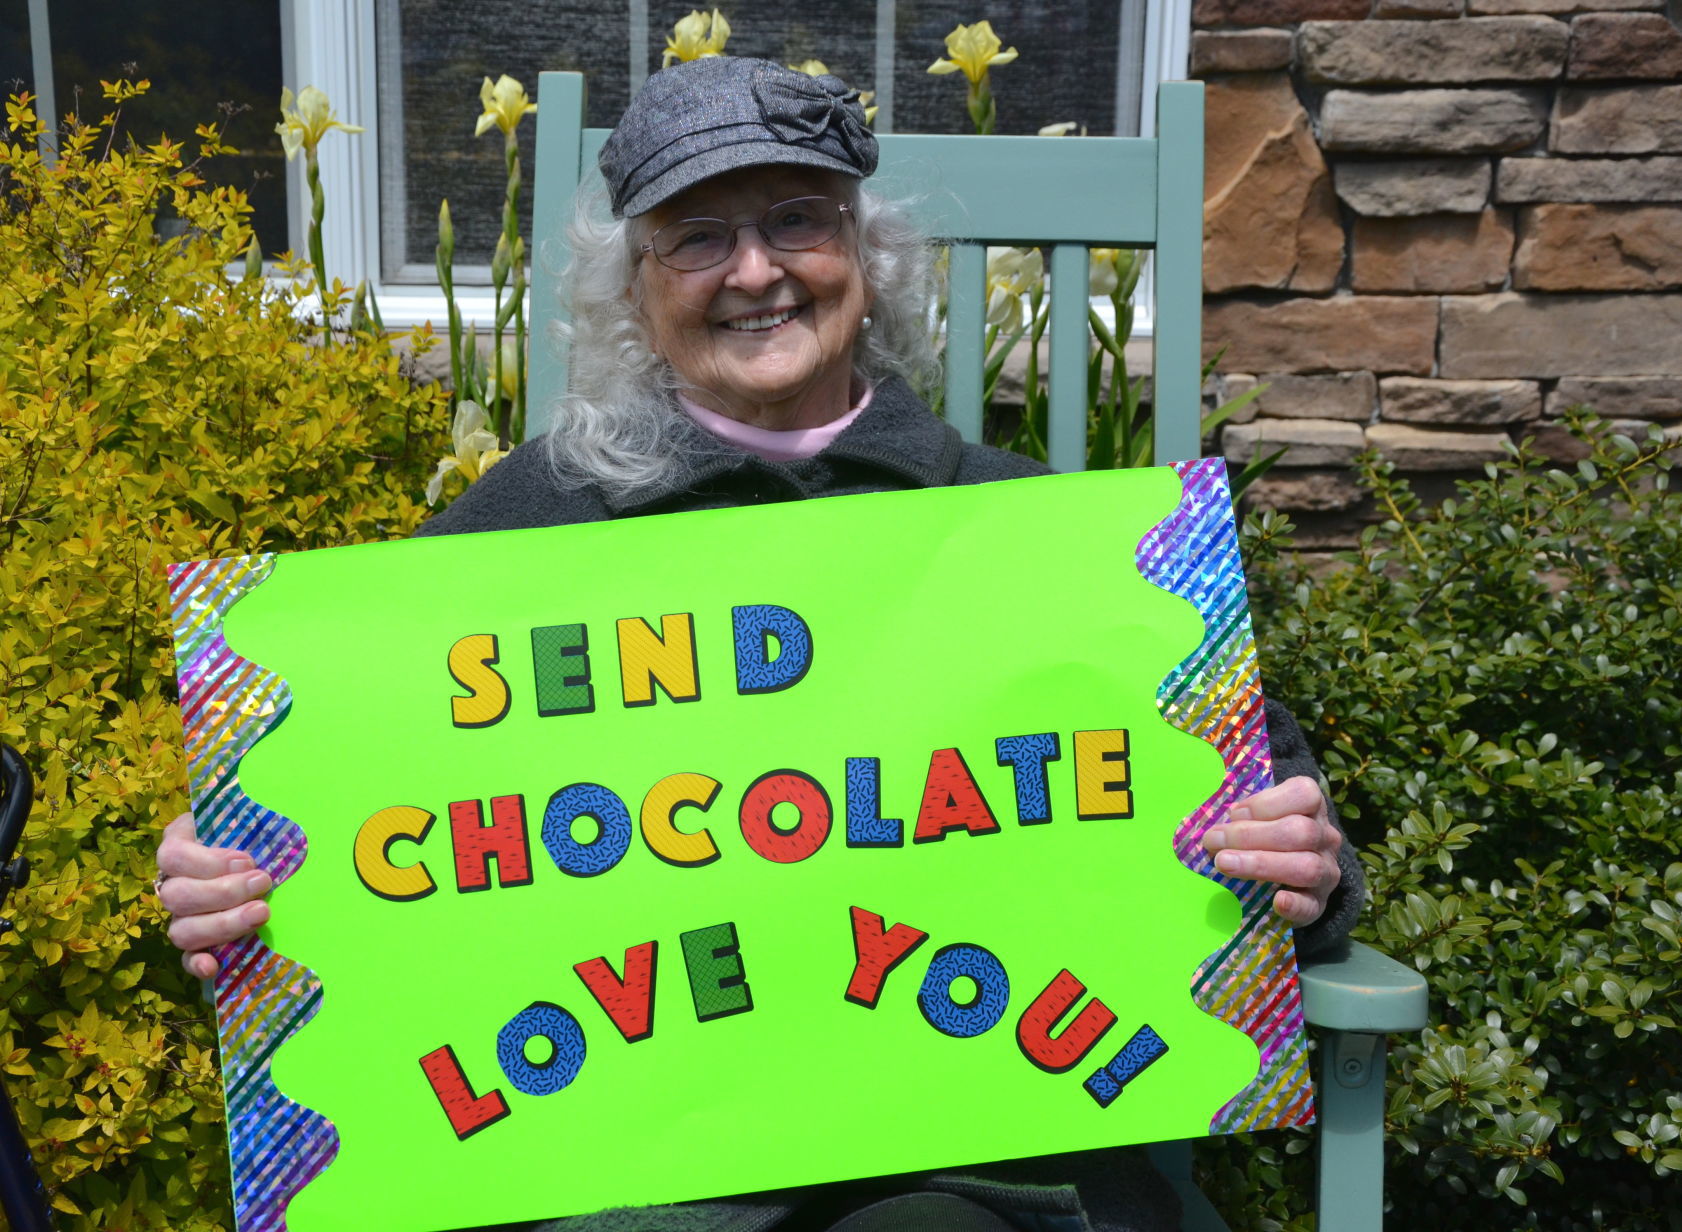 SEND
CHOCOLATE
LOVE YOU!